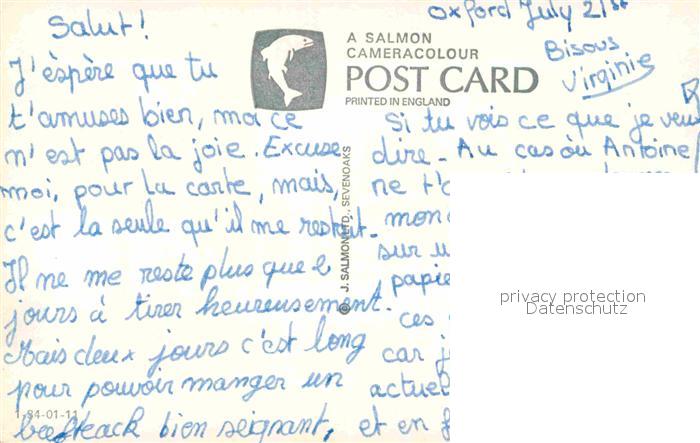 Salut!
Oxford July 21st
J'éspère que tu
t'amuses bien, moi ce
n'est pas la joie. Excuse
moi, pour la carte, mais,
c'est la seule qu'il me restait.
Il ne me reste plus que 2
jours à tirer heureusement.
Mais deux jours c'est long
pour pouvoir manger un
beefteack bien seignant,
A SALMON
CAMERACOLOUR
POST CARD
PRINTED IN ENGLAND
J. SALMON LTD., SEVENOAKS
1-84-01-11
Bisous
Virginie
si tu vois ce que je veux
dire. Au cas où Antoine
ne t'a
mon
sur u
papie
ces
car j
actuel
et en f
privacy protection
Datenschutz